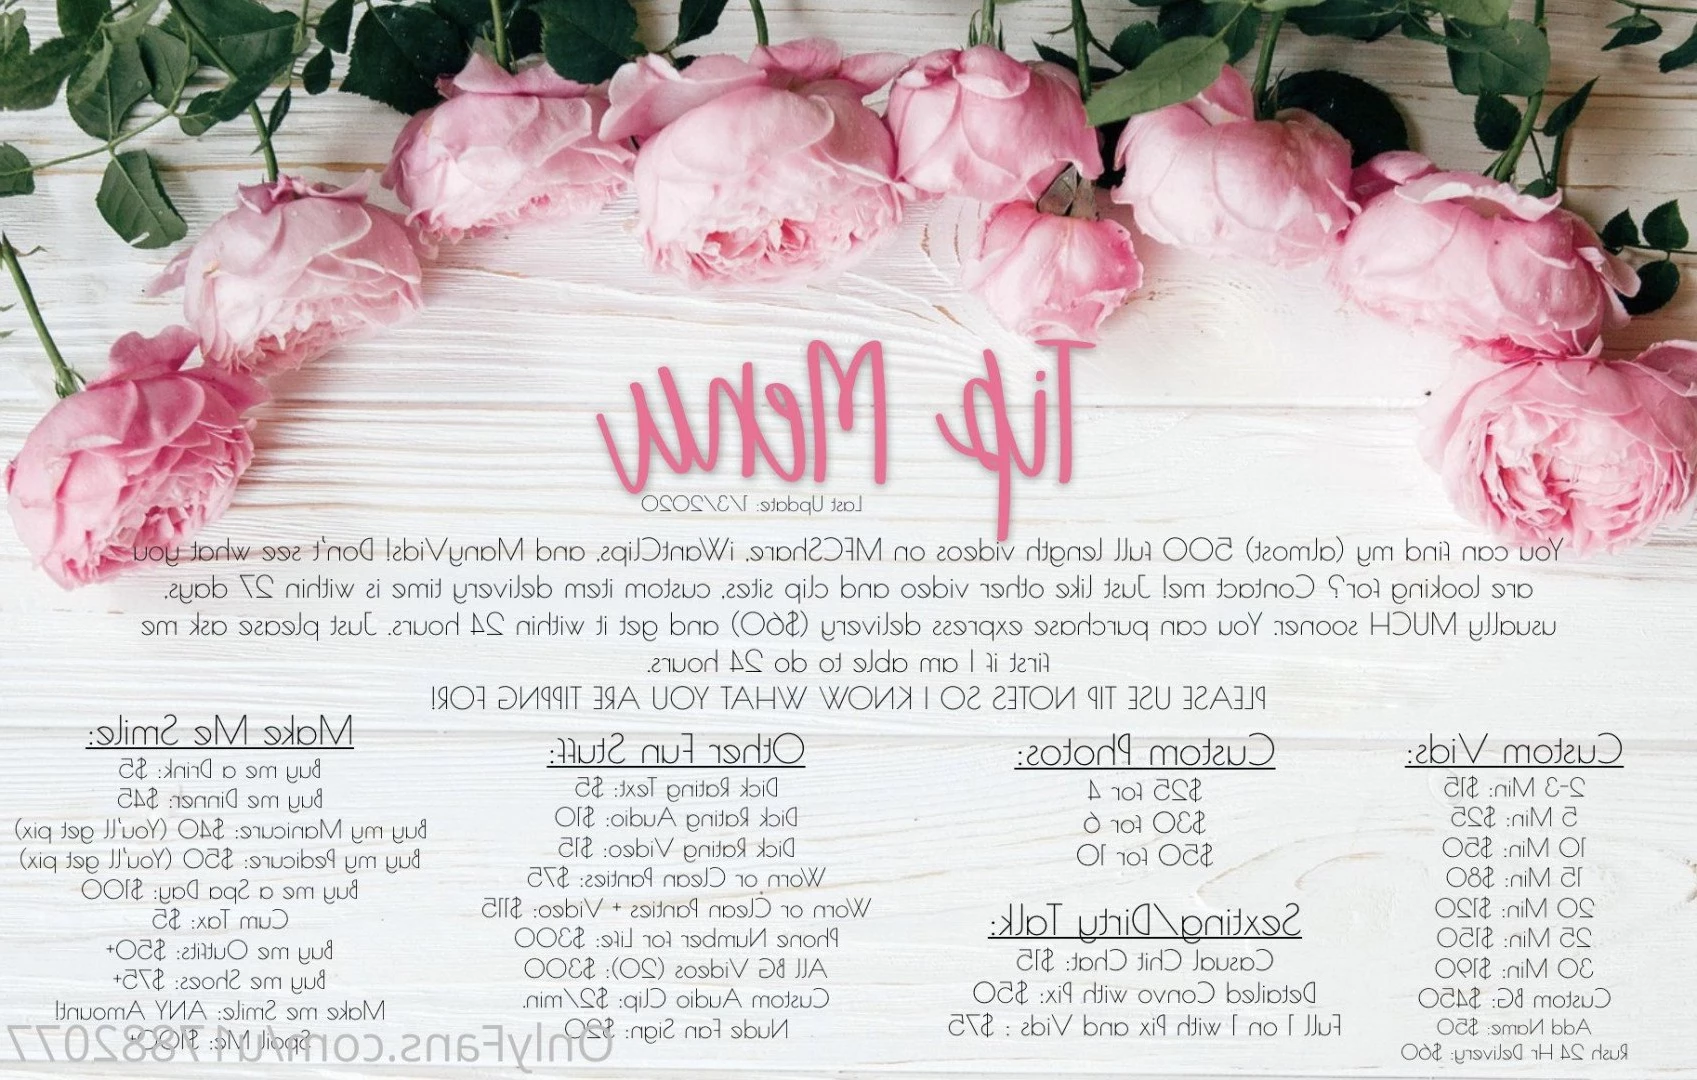 Tip Menu
Last Update: 1/3/2020
You can find my (almost) 500 full length videos on MFCShare, iWantClips, and ManyVids! Don't see what you
are looking for? Contact me! Just like other video and clip sites, custom item delivery time is within 27 days,
usually MUCH sooner. You can purchase express delivery ($60) and get it within 24 hours. Just please ask me
first if I am able to do 24 hours.
PLEASE USE TIP NOTES SO I KNOW WHAT YOU ARE TIPPNG FOR!
Custom Vids:
2-3 Min: $15
5 Min: $25
10 Min: $50
15 Min: $80
20 Min: $120
25 Min: $150
30 Min: $190
Custom BG: $450
Add Name: $50
Rush 24 Hr Delivery: $60
Custom Photos:
$25 for 4
$30 for 6
$50 for 10
Sexting/Dirty Talk:
Casual Chit Chat: $15
Detailed Convo with Pix: $50
Full 1 on 1 with Pix and Vids : $75
Other Fun Stuff:
Dick Rating Text: $5
Dick Rating Audio: $10
Dick Rating Video: $15
Worn or Clean Panties: $75
Worn or Clean Panties + Video: $115
Phone Number for Life: $300
All BG Videos (20): $300
Custom Audio Clip: $2/min.
Nude Fan Sign: $20
Make Me Smile:
Buy me a Drink: $5
Buy me Dinner: $45
Buy my Manicure: $40 (You'll get pix)
Buy my Pedicure: $50 (You'll get pix)
Buy me a Spa Day: $100
Cum Tax: $5
Buy me Outfits: $50+
Buy me Shoes: $75+
Make me Smile: ANY Amount!
Spoil Me: $100+
OnlyFans.com/u17882077